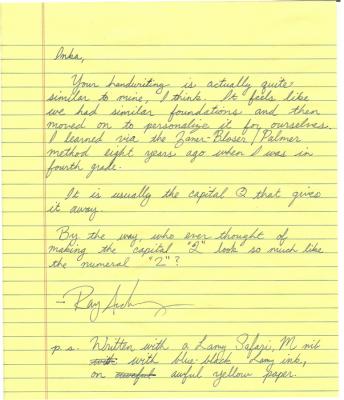 Inka,
Your handwriting is actually quite
similar to mine, I think. It feels like
we had similar foundations and then
moved on to personalize it for ourselves.
I learned via the Zaner-Bloser/Palmer
method eight years ago when I was in
fourth grade.
It is usually the capital Q that gives
it away.
By the way, who ever thought of
making the capital "Q" look so much like
the numeral "2"?
- Ray
p.s. Written with a Lamy Safari, M nib
with with blue-black Lamy ink,
on awful awful yellow paper.